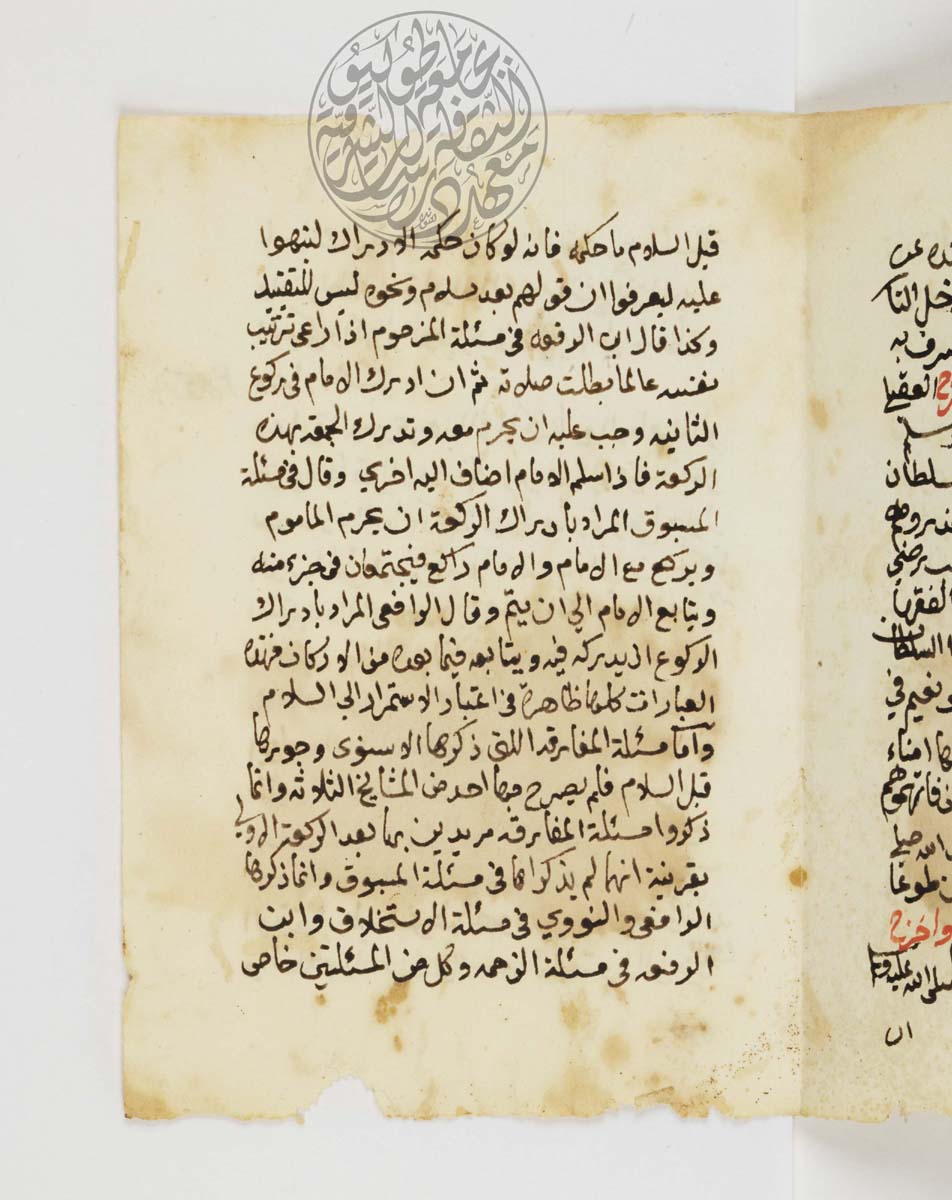 قبل السلام ما حكمه فانه لو كان حكمه الادراك لنبهوا
عليه ليعرفوا ان قولهم بعد سلام ونحوه ليس للتقييد
وكذا قال ابن الرفعه فى مسئلة المزحوم اذا راعى ترتيب
نفسه عالما بطلت صلاته ثم ان ادرك الامام فى ركوع
الثانيه وجب عليه ان يحرم معه وتدرك الجمعة بهذه
الركعة فاذا سلم الامام اضاف اليه اخري وقال فى مسئلة
المسبوق المراد بادراك الركعة ان يحرم الماموم
ويركع مع الامام والامام راكع فيجتمعان فى جزء منه
ويتابع الامام الي ان يتم وقال الرافعى المراد بادراك
الركوع ان يدركه فيه ويتابعه فيما بعده من الاركان فهذه
العبارات كلها ظاهرة فى اعتبار الاستمرار الي السلام
واما مسئلة المفارقة اللتى ذكرها الاسنوى وجوبرها
قبل السلام فلم يصرح بها احد من المشايخ الثلاثه وانما
ذكروا مسئلة المفارقه مريدين بها بعد الركعة الاولي
بقرينة انهما لم يذكراها فى مسئلة المسبوق وانما ذكرها
الرافعى والنووي فى مسئلة الاستخلاف وابن
الرفعه فى مسئلة الزحمه وكل من المسئلتين خاص
خل التا
العقيا
سلطان
الفقرا
السلطان
ونعيم في
امناء
واخرج
صلى الله عليه و
ان
جامعة طوكيو
معهد دراسات الثقافة الشرقية